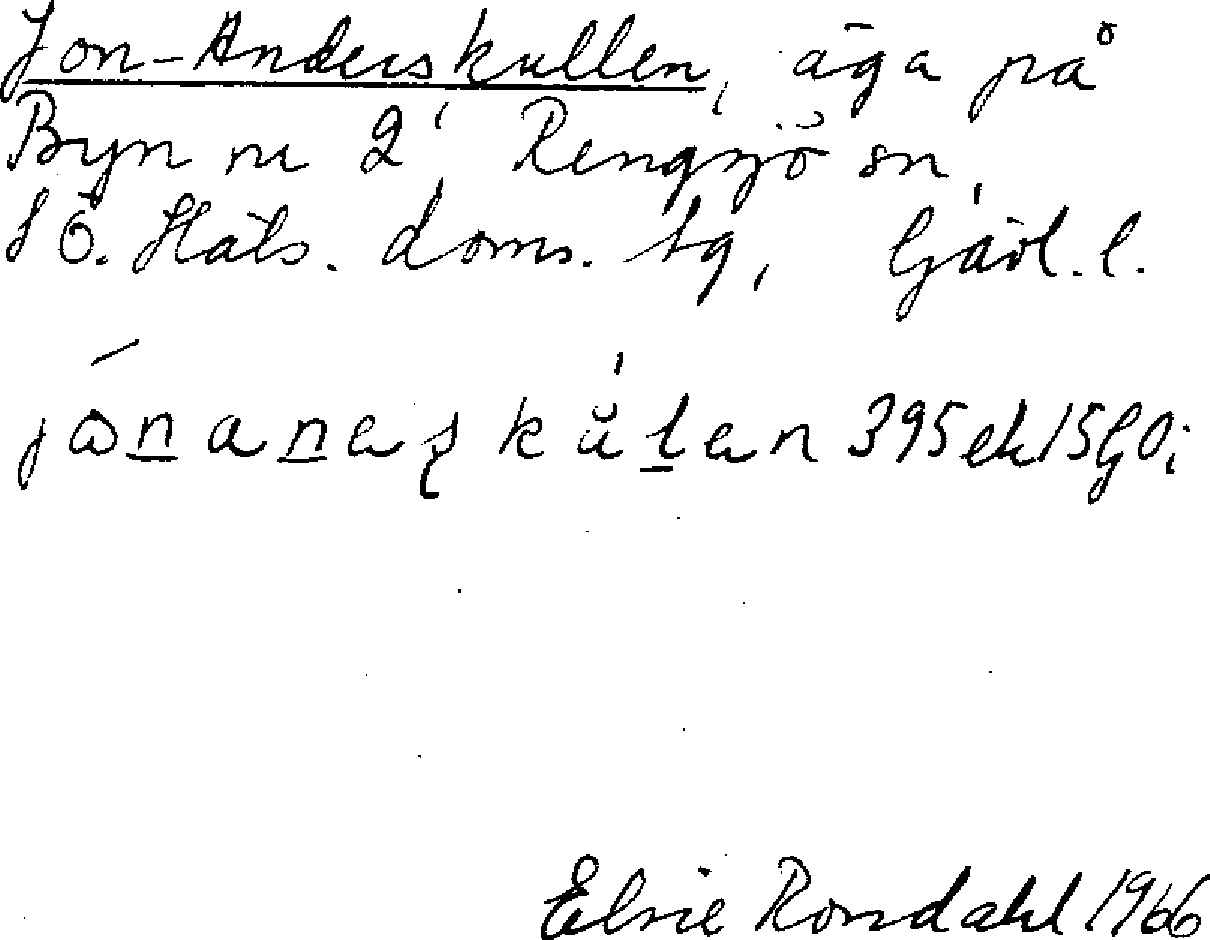 Jon-Anderskullen, äga på
Byn nr 2, Rengsjö sn,
SÖ. Häls. doms. tg, Gävl. l.
395 ek 15 G 0i
Elsie Rondahl 1966